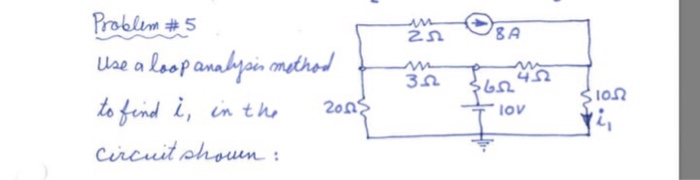 Problem # 5
Use a loop analysis method
to find i₁ in the
circuit shown :
2Ω
8A
3Ω
6Ω
4Ω
20Ω
10V
10Ω
i₁